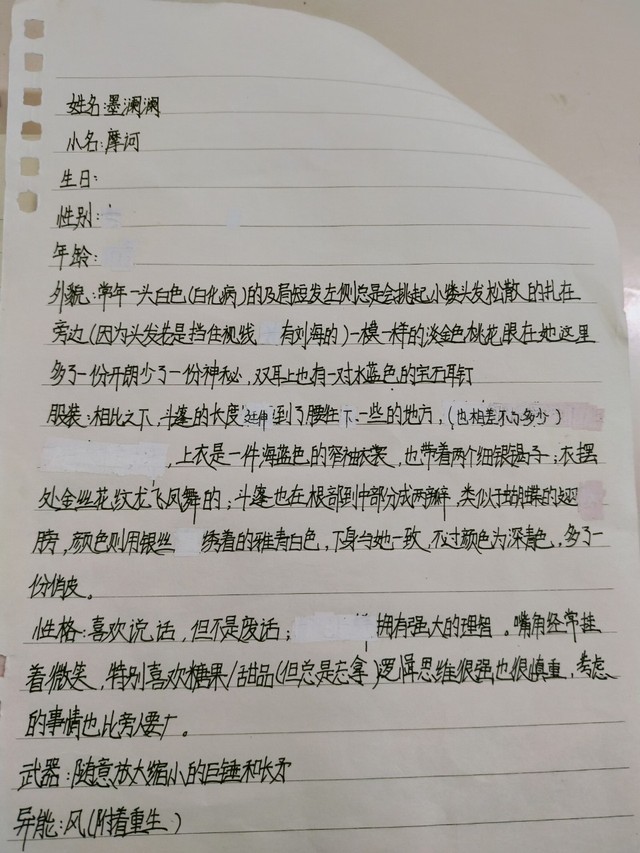 姓名:墨澜澜
小名:摩诃
生日:
性别:
年龄:
外貌:常年一头白色(白化病)的及肩短发左侧总是会挑起小缕头发松散的扎在
旁边(因为头发总是挡住视线 有刘海的)一模一样的淡金色桃花眼在她这里
多了一份开朗少了一份神秘,双耳上也有一对水蓝色的宝石耳钉
服装:相比之下,斗篷的长度延伸到了腰往下一些的地方,(也相差不了多少)
,上衣是一件海蓝色的窄袖衣裳,也带着两个细银镯子;衣摆
处金丝花纹龙飞凤舞的;斗篷也在根部到中部分成两瓣,类似于蝴蝶的翅
膀,颜色则用银丝 绣着的雅青白色,下身与她一致,不过颜色为深青色,多了一
份俏皮。
性格:喜欢说话,但不是废话; 拥有强大的理智。嘴角经常挂
着微笑,特别喜欢糖果/甜品(但总是忘拿)逻辑思维很强也很慎重,考虑
的事情也比旁人要广。
武器:随意放大缩小的巨锤和长矛
异能:风(附着重生)